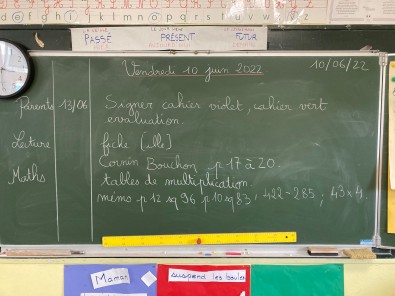 PASSÉ PRÉSENT FUTUR
Vendredi 10 juin 2022 10/06/22
Parents 13/06 Signer cahier violet, cahier vert
évaluation.
Lecture fiche [ille]
Bouchon p 17 à 20.
Maths tables de multiplication
mémo p 12 sq 96 p 10 sq 83, 422 - 285, 43 x 4.
Maman suspend les boules